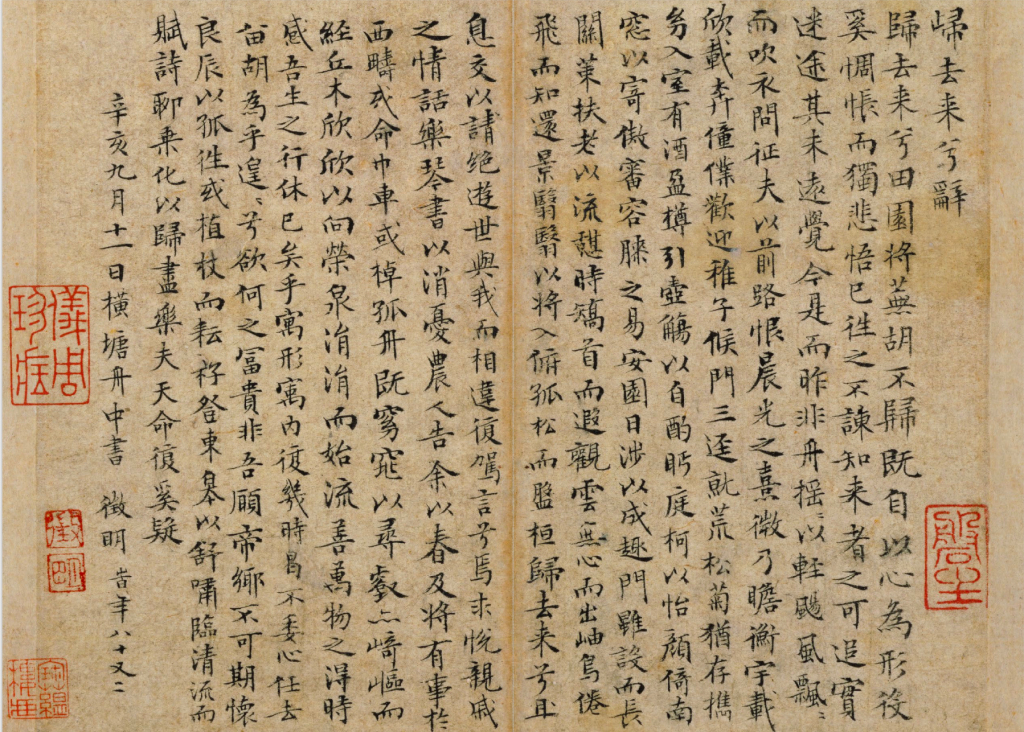 歸去来兮辭
歸去来兮田園将蕪胡不歸既自以心為形役
奚惆悵而獨悲悟已徃之不諫知来者之可追實
迷途其未遠覺今是而昨非舟搖〻以輕颺風飄〻
而吹衣問征夫以前路恨晨光之熹微乃瞻衡宇載
欣載奔僮僕歡迎稚子候門三逕就荒松菊猶存攜
幼入室有酒盈樽引壺觴以自酌眄庭柯以怡顏倚南
窓以寄傲審容膝之易安園日涉以成趣門雖設而長
關策扶老以流憩時矯首而遐觀雲無心而出岫鳥倦
飛而知還景翳翳以将入俯孤松而盤桓歸去来兮且
息交以請絕遊世與我而相違復駕言兮焉求悅親戚
之情話樂琴書以消憂農人告余以春及将有事於
西疇或命巾車或棹孤舟既窈窕以尋壑亦崎嶇而
經丘木欣欣以向榮泉涓涓而始流善萬物之得時
感吾生之行休已矣乎寓形寓內復幾時曷不委心任去
留胡為乎遑〻兮欲何之富貴非吾願帝鄉不可期懷
良辰以孤徃或植杖而耘耔登東皋以舒嘯臨清流而
賦詩聊乘化以歸盡樂夫天命復奚疑
辛亥九月十一日橫塘舟中書 徵明 峕年八十又二
儀周珍藏
徵明